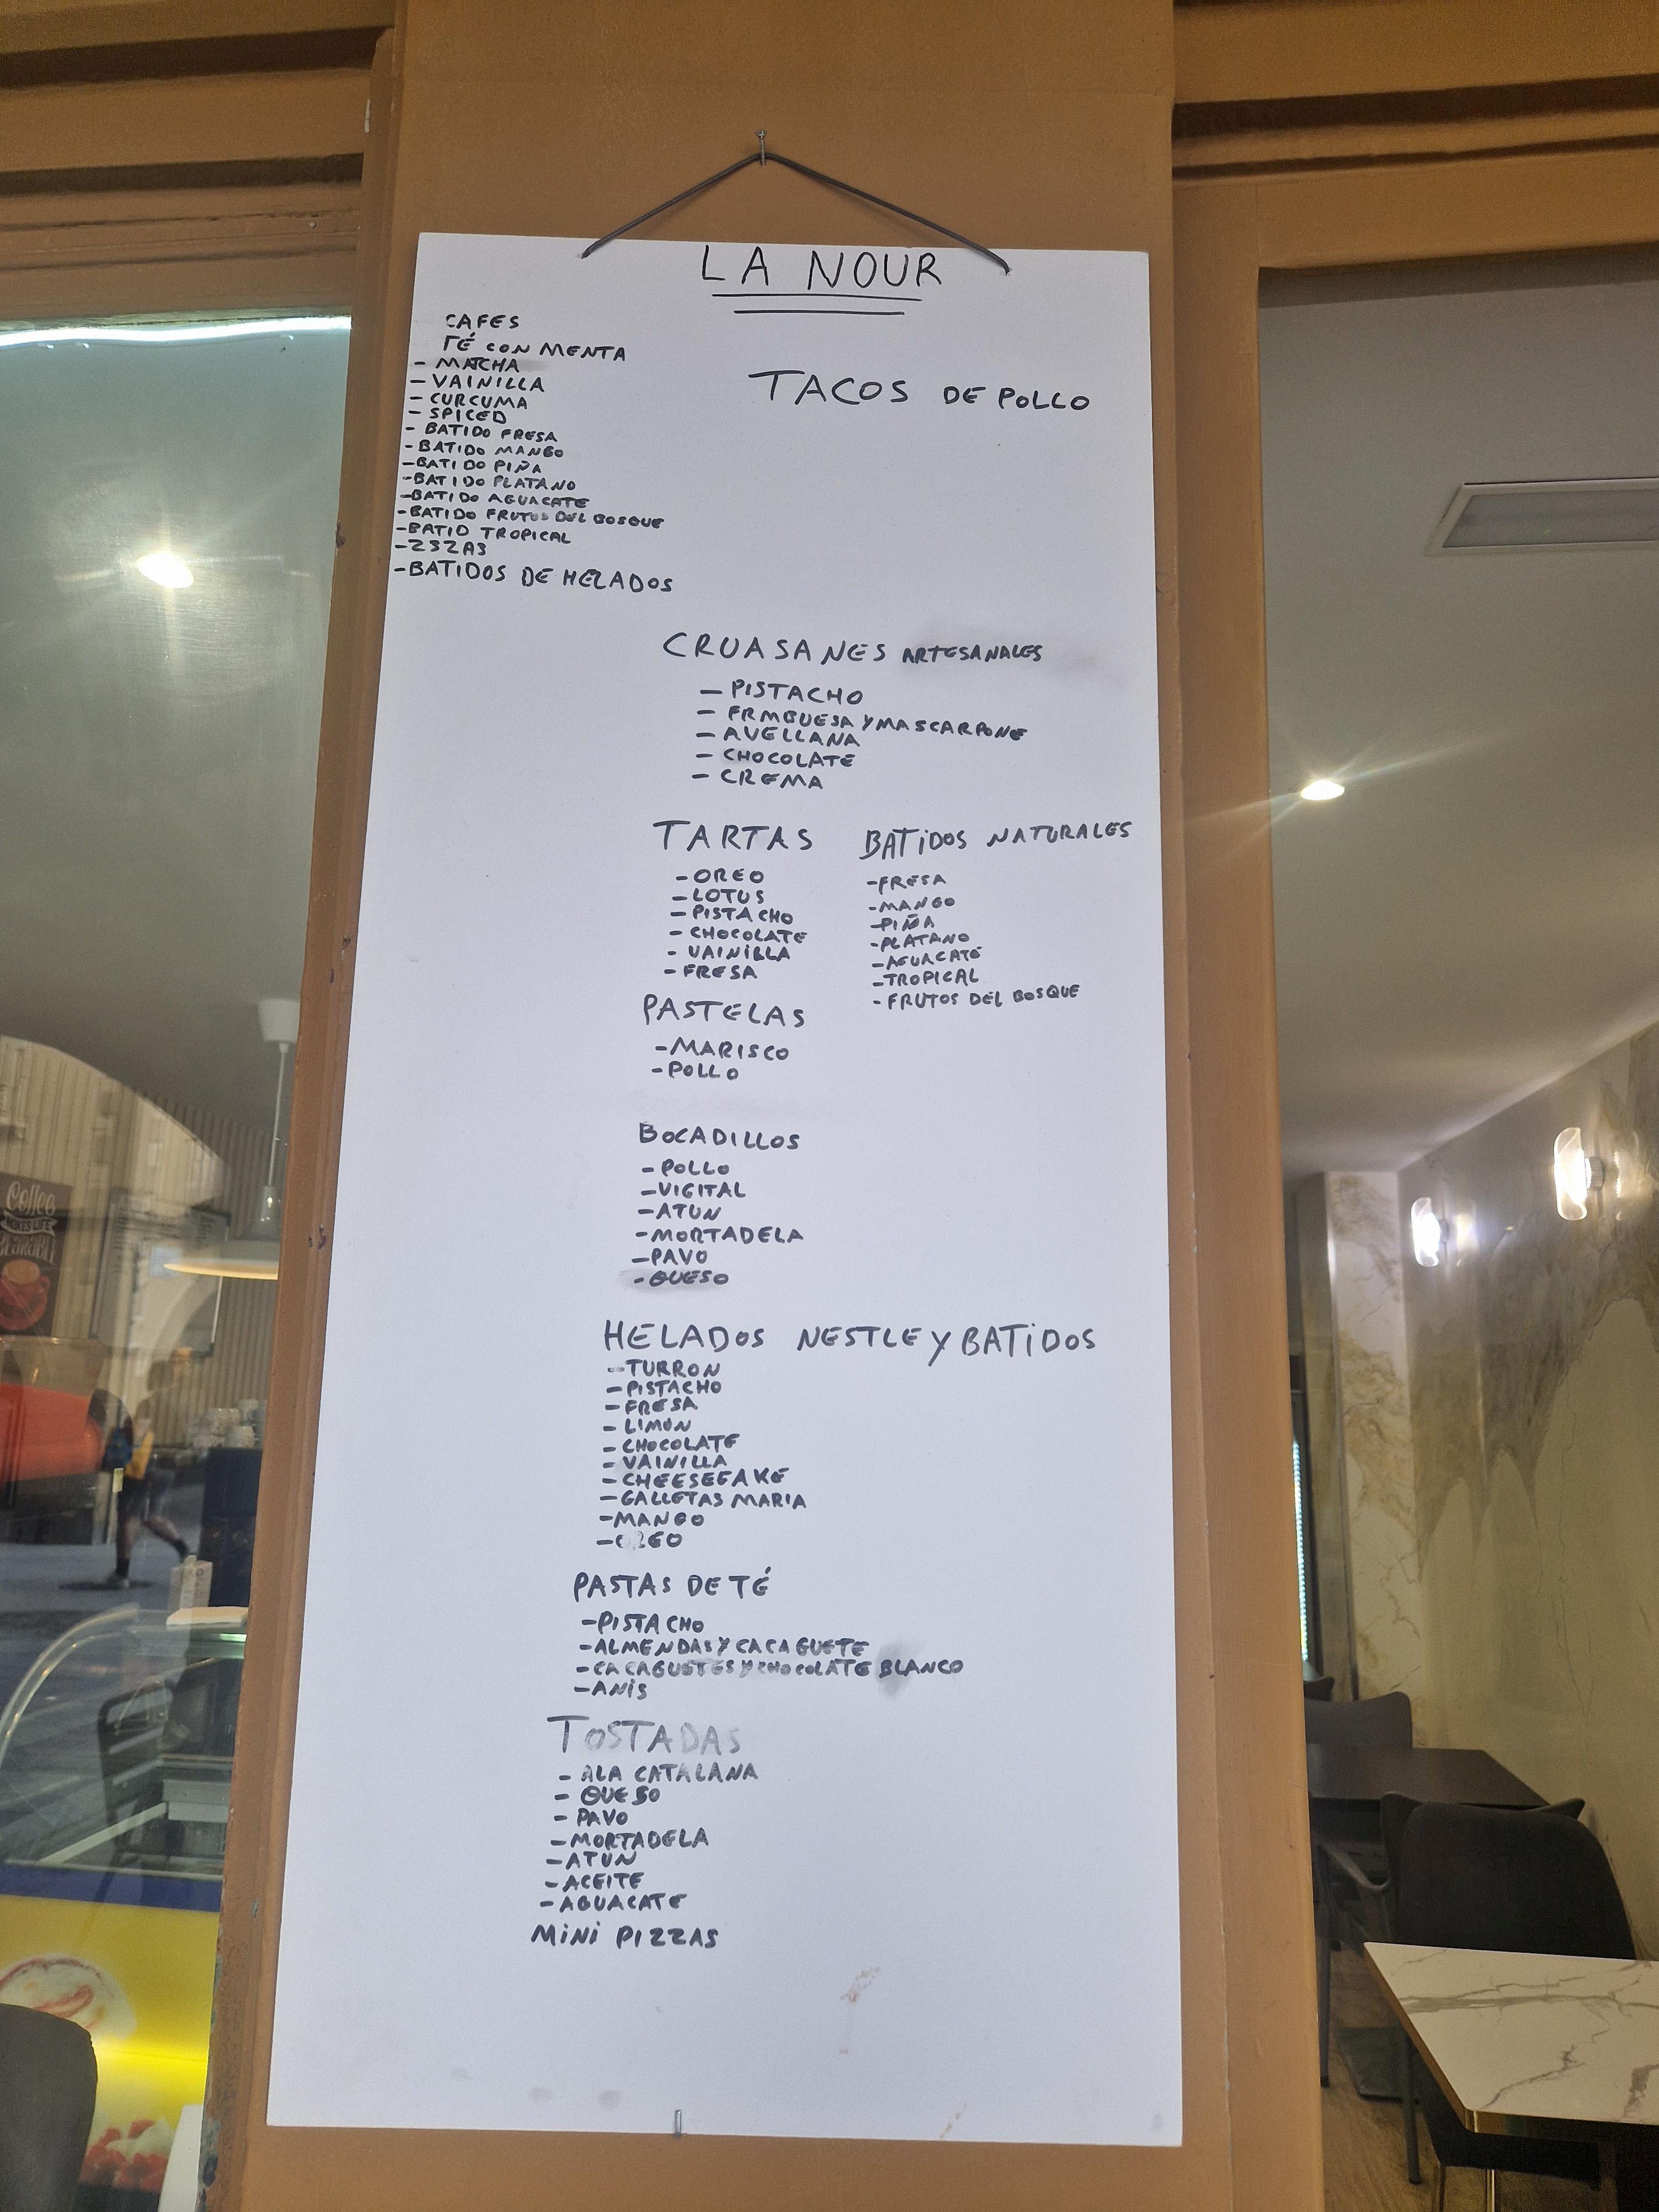 LA NOUR
CAFES
TÉ CON MENTA
- MATCHA
- VAINILLA
- CURCUMA
- SPICED
- BATIDO FRESA
- BATIDO MANGO
- BATIDO PIÑA
- BATIDO PLATANO
- BATIDO AGUACATE
- BATIDO FRUTOS DEL BOSQUE
- BATID TROPICAL
- BATIDOS DE HELADOS
TACOS DE POLLO
CRUASANES ARTESANALES
- PISTACHO
- FRMBUESA Y MASCARPONE
- AVELLANA
- CHOCOLATE
- CREMA
TARTAS
- OREO
- LOTUS
- PISTACHO
- CHOCOLATE
- VAINILLA
- FRESA
BATIDOS NATURALES
- FRESA
- MANGO
- PIÑA
- PLATANO
- AGUACATE
- TROPICAL
- FRUTOS DEL BOSQUE
PASTELAS
- MARISCO
- POLLO
BOCADILLOS
- POLLO
- VIGITAL
- ATUN
- MORTADELA
- PAVO
- QUESO
HELADOS NESTLE Y BATIDOS
- TURRON
- PISTACHO
- FRESA
- LIMON
- CHOCOLATE
- VAINILLA
- CHEESEEAKE
- GALLETAS MARIA
- MANGO
- OREO
PASTAS DE TÉ
- PISTACHO
- ALMENDAS Y CACAGUETE
- CACAGUETES Y CHOCOLATE BLANCO
- ANIS
TOSTADAS
- ALA CATALANA
- QUESO
- PAVO
- MORTADELA
- ATUN
- ACEITE
- AGUACATE
MINI PIZZAS
Coffee
MAKES LIFE
BEARABLE